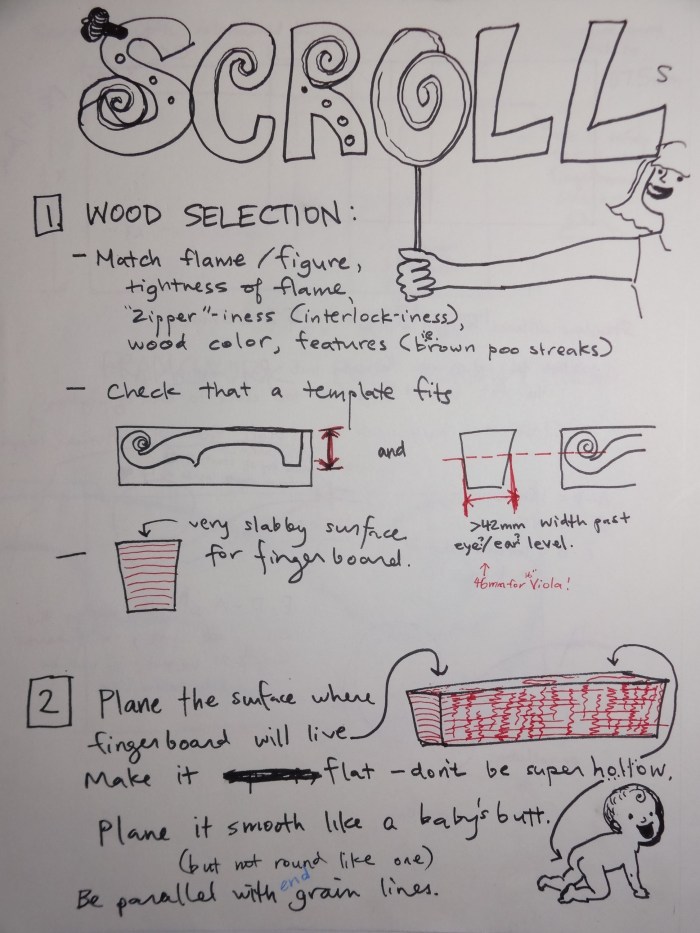 SCROLL
S
1 WOOD SELECTION:
- Match flame/figure,
tightness of flame,
"Zipper"-iness (interlock-iness),
wood color, features (ie brown poo streaks)
- Check that a template fits
and
>42mm width past
eye?/ear? level.
46mm for 16" Viola!
- very slabby surface
for fingerboard.
2 Plane the surface where
fingerboard will live
Make it flat - don't be super hollow.
Plane it smooth like a baby's butt.
(but not round like one)
Be parallel with end grain lines.